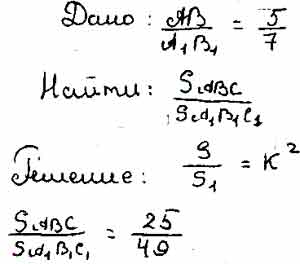 Дано: AB/A₁B₁ = 5/7
Найти: SABC/SA₁B₁C₁
Решение: S/S₁ = K²
SABC/SA₁B₁C₁ = 25/49